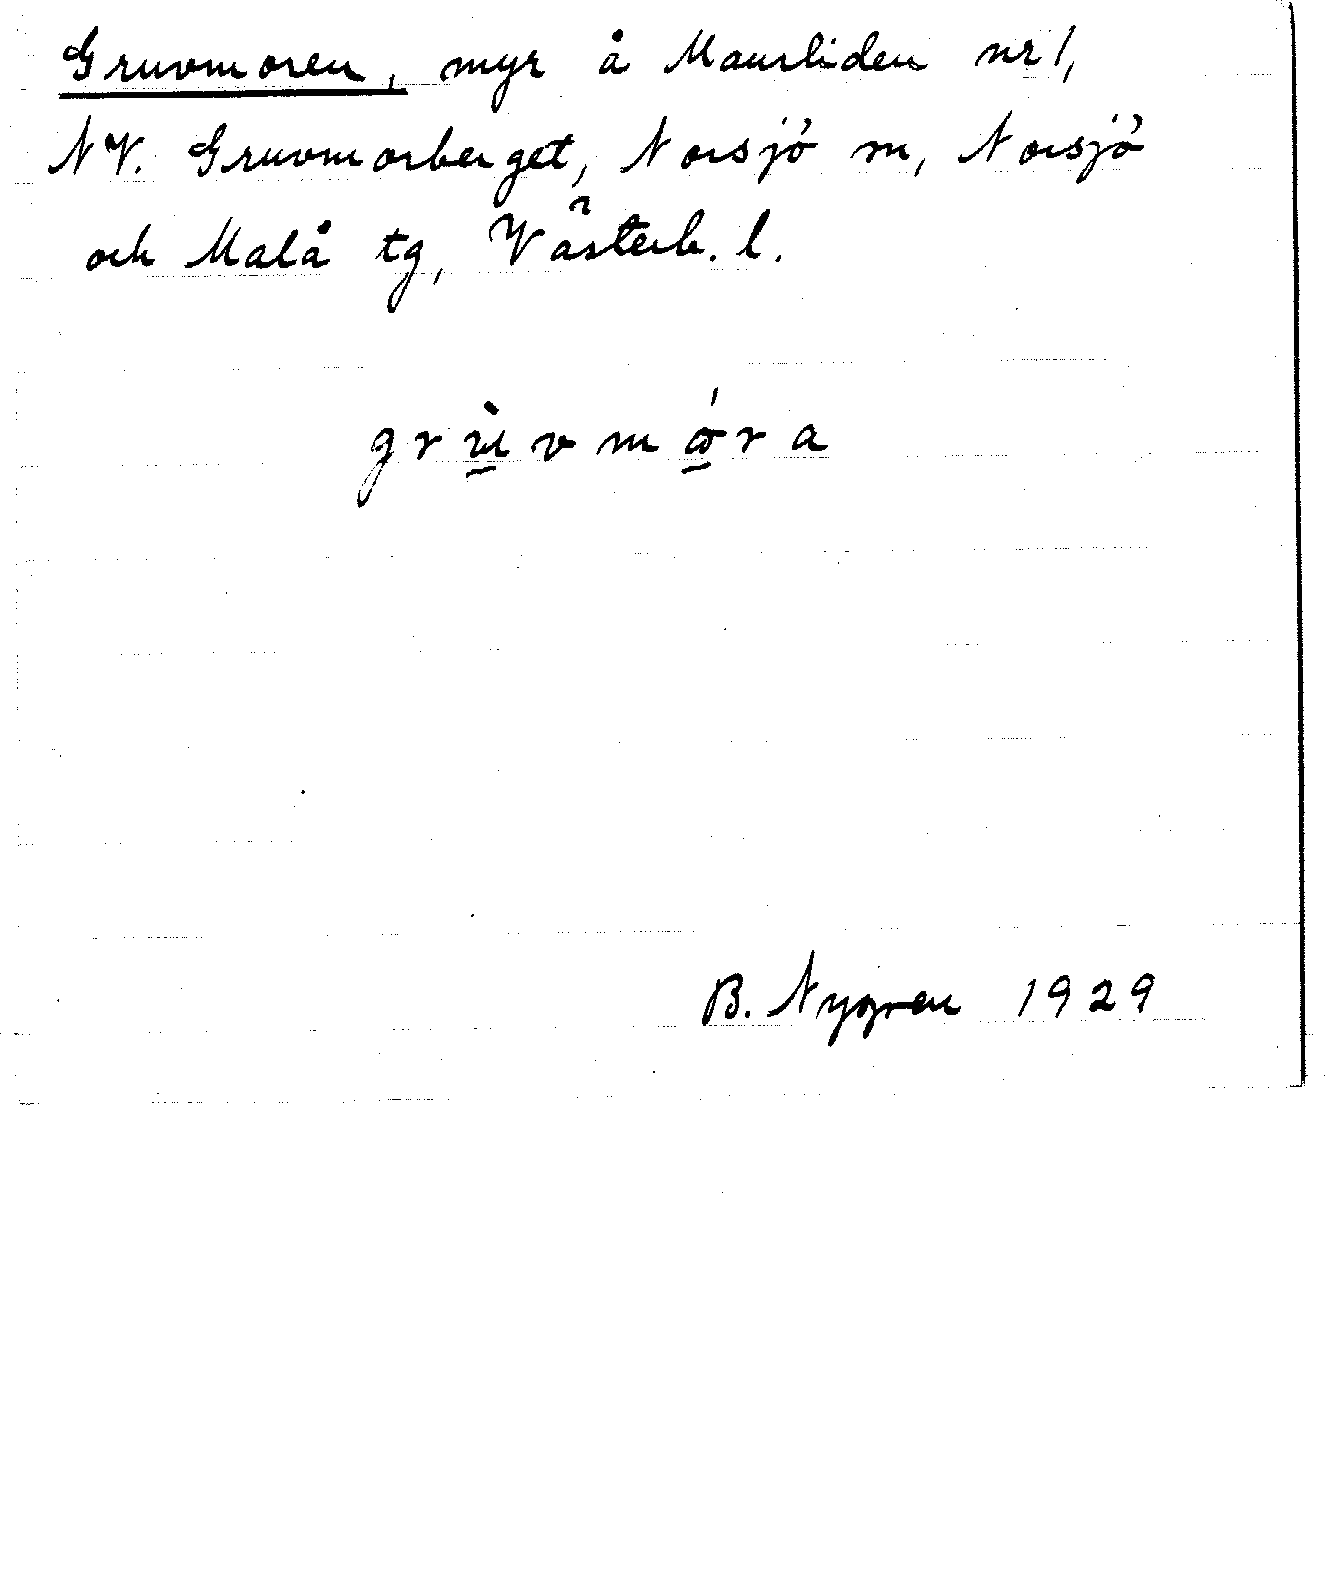 Gruvmoren, myr å Maurliden nr 1,
NV. Gruvmorberget, Norsjö sn, Norsjö
och Malå tg, Västerb. l.
grùvmóra
B. Nygren 1929